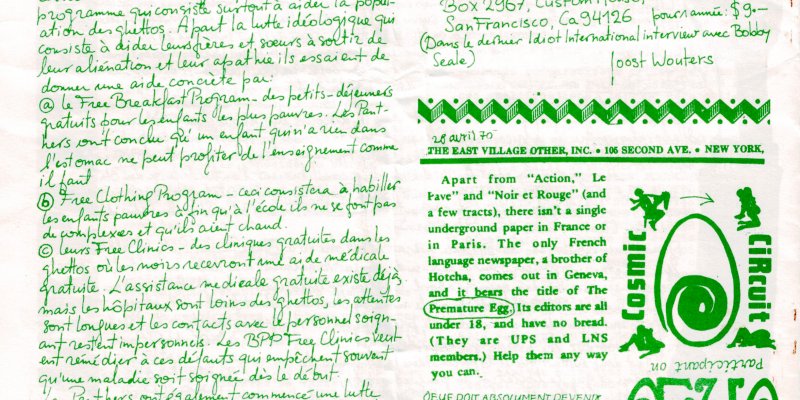 programme qui consiste surtout à aider la popul-
ation des ghettos. A part la lutte idéologique qui
consiste à aider leurs frères et sœurs à sortir de
leur aliénation et leur apathie ils essaient de
donner une aide concrète par:
ⓐ le Free Breakfast Program - des petits-déjeuners
gratuits pour les enfants les plus pauvres. Les Pant-
hers ont conclu qu'un enfant qui n'a rien dans
l'estomac ne peut profiter de l'enseignement comme
il faut
ⓑ Free Clothing Program - ceci consistera à habiller
les enfants pauvres afin qu'à l'école ils ne se font pas
de complexes et qu'ils aient chaud.
ⓒ leurs Free Clinics - des cliniques gratuites dans les
ghettos où les noirs recevront une aide médicale
gratuite. L'assistance medicale gratuite existe déjà
mais les hôpitaux sont loins des ghettos, les attentes
sont longues et les contacts avec le personnel soign-
ant restent impersonnels. Les BPP Free Clinics veul-
ent remédier à ces défauts qui empêchent souvent
qu'une maladie soit soignée dès le début.
Panthers ont également commencé une lutte
Box 2967, Custom House,
San Francisco, Ca 94126 pour année: $9.-
(Dans le dernier Idiot International interview avec Bobby
Seale)
Joost Wouters
28 avril 70
THE EAST VILLAGE OTHER, INC. • 105 SECOND AVE. • NEW YORK,
Apart from "Action," Le
Pave" and "Noir et Rouge" (and
a few tracts), there isn't a single
underground paper in France or
in Paris. The only French
language newspaper, a brother of
Hotcha, comes out in Geneva,
and it bears the title of The
Premature Egg. Its editors are all
under 18, and have no bread.
(They are UPS and LNS
members.) Help them any way
you can.
OEUF DOIT ABSOLUMENT DEVENIR
Cosmic
CiRcuit
Participant on